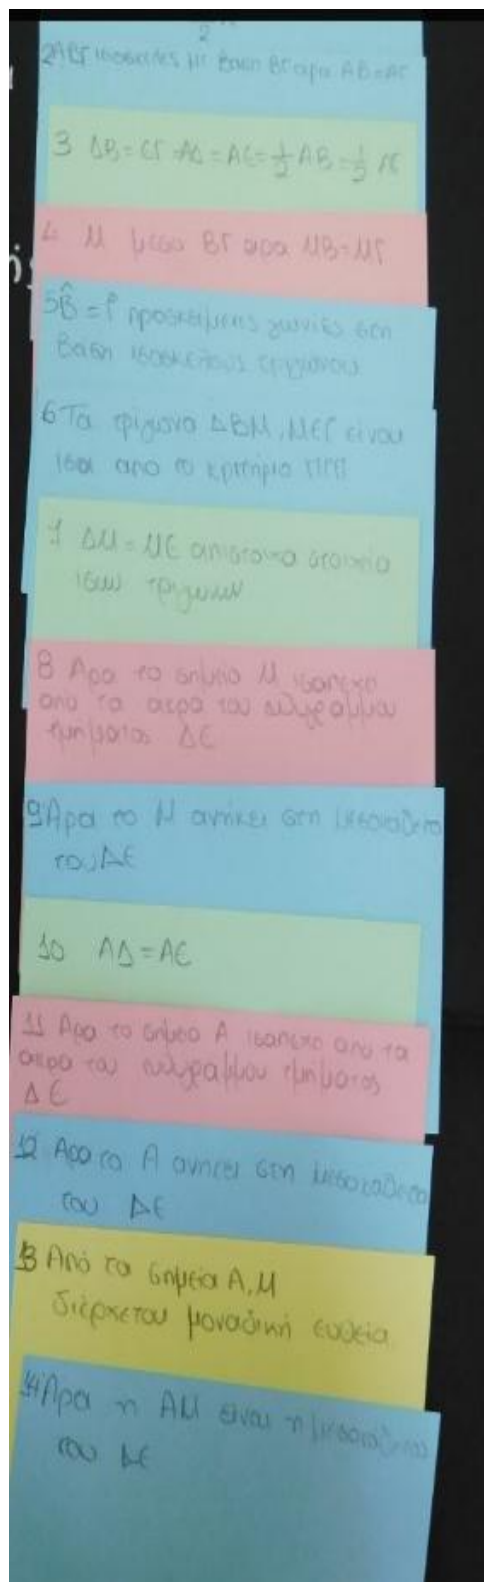 2
2 ΑΒΓ ισοσκελές με βαση ΒΓ αρα ΑΒ=ΑΓ
3 ΔΒ=ΕΓ=ΑΔ=ΑΕ=½ΑΒ=½ΑΓ
4 Μ μεσο ΒΓ αρα ΜΒ=ΜΓ
5 B̂=Γ̂ προσκειμενες γωνιες στη
βαση ισοσκελους τριγωνου
6 Τα τριγωνα ΔΒΜ, ΜΕΓ είναι
ισα απο το κριτήριο ΠΓΠ
7 ΔΜ=ΜΕ αντιστοιχα στοιχεία
ισων τριγωνων
8 Αρα το σημείο Μ ισαπεχει
απο τα ακρα του ευθυγραμμου
τμηματος ΔΕ
9 Αρα το Μ ανήκει στη μεσοκαθετο
του ΔΕ
10 ΑΔ=ΑΕ
11 Αρα το σημειο Α ισαπεχει απο τα
ακρα του ευθυγραμμου τμηματος
ΔΕ
12 Αρα το Α ανηκει στη μεσοκαθετο
του ΔΕ
13 Από τα σημεία Α, Μ
διέρχεται μοναδική ευθεία
14 Αρα η ΑΜ είναι η μεσοκαθετος
του ΔΕ